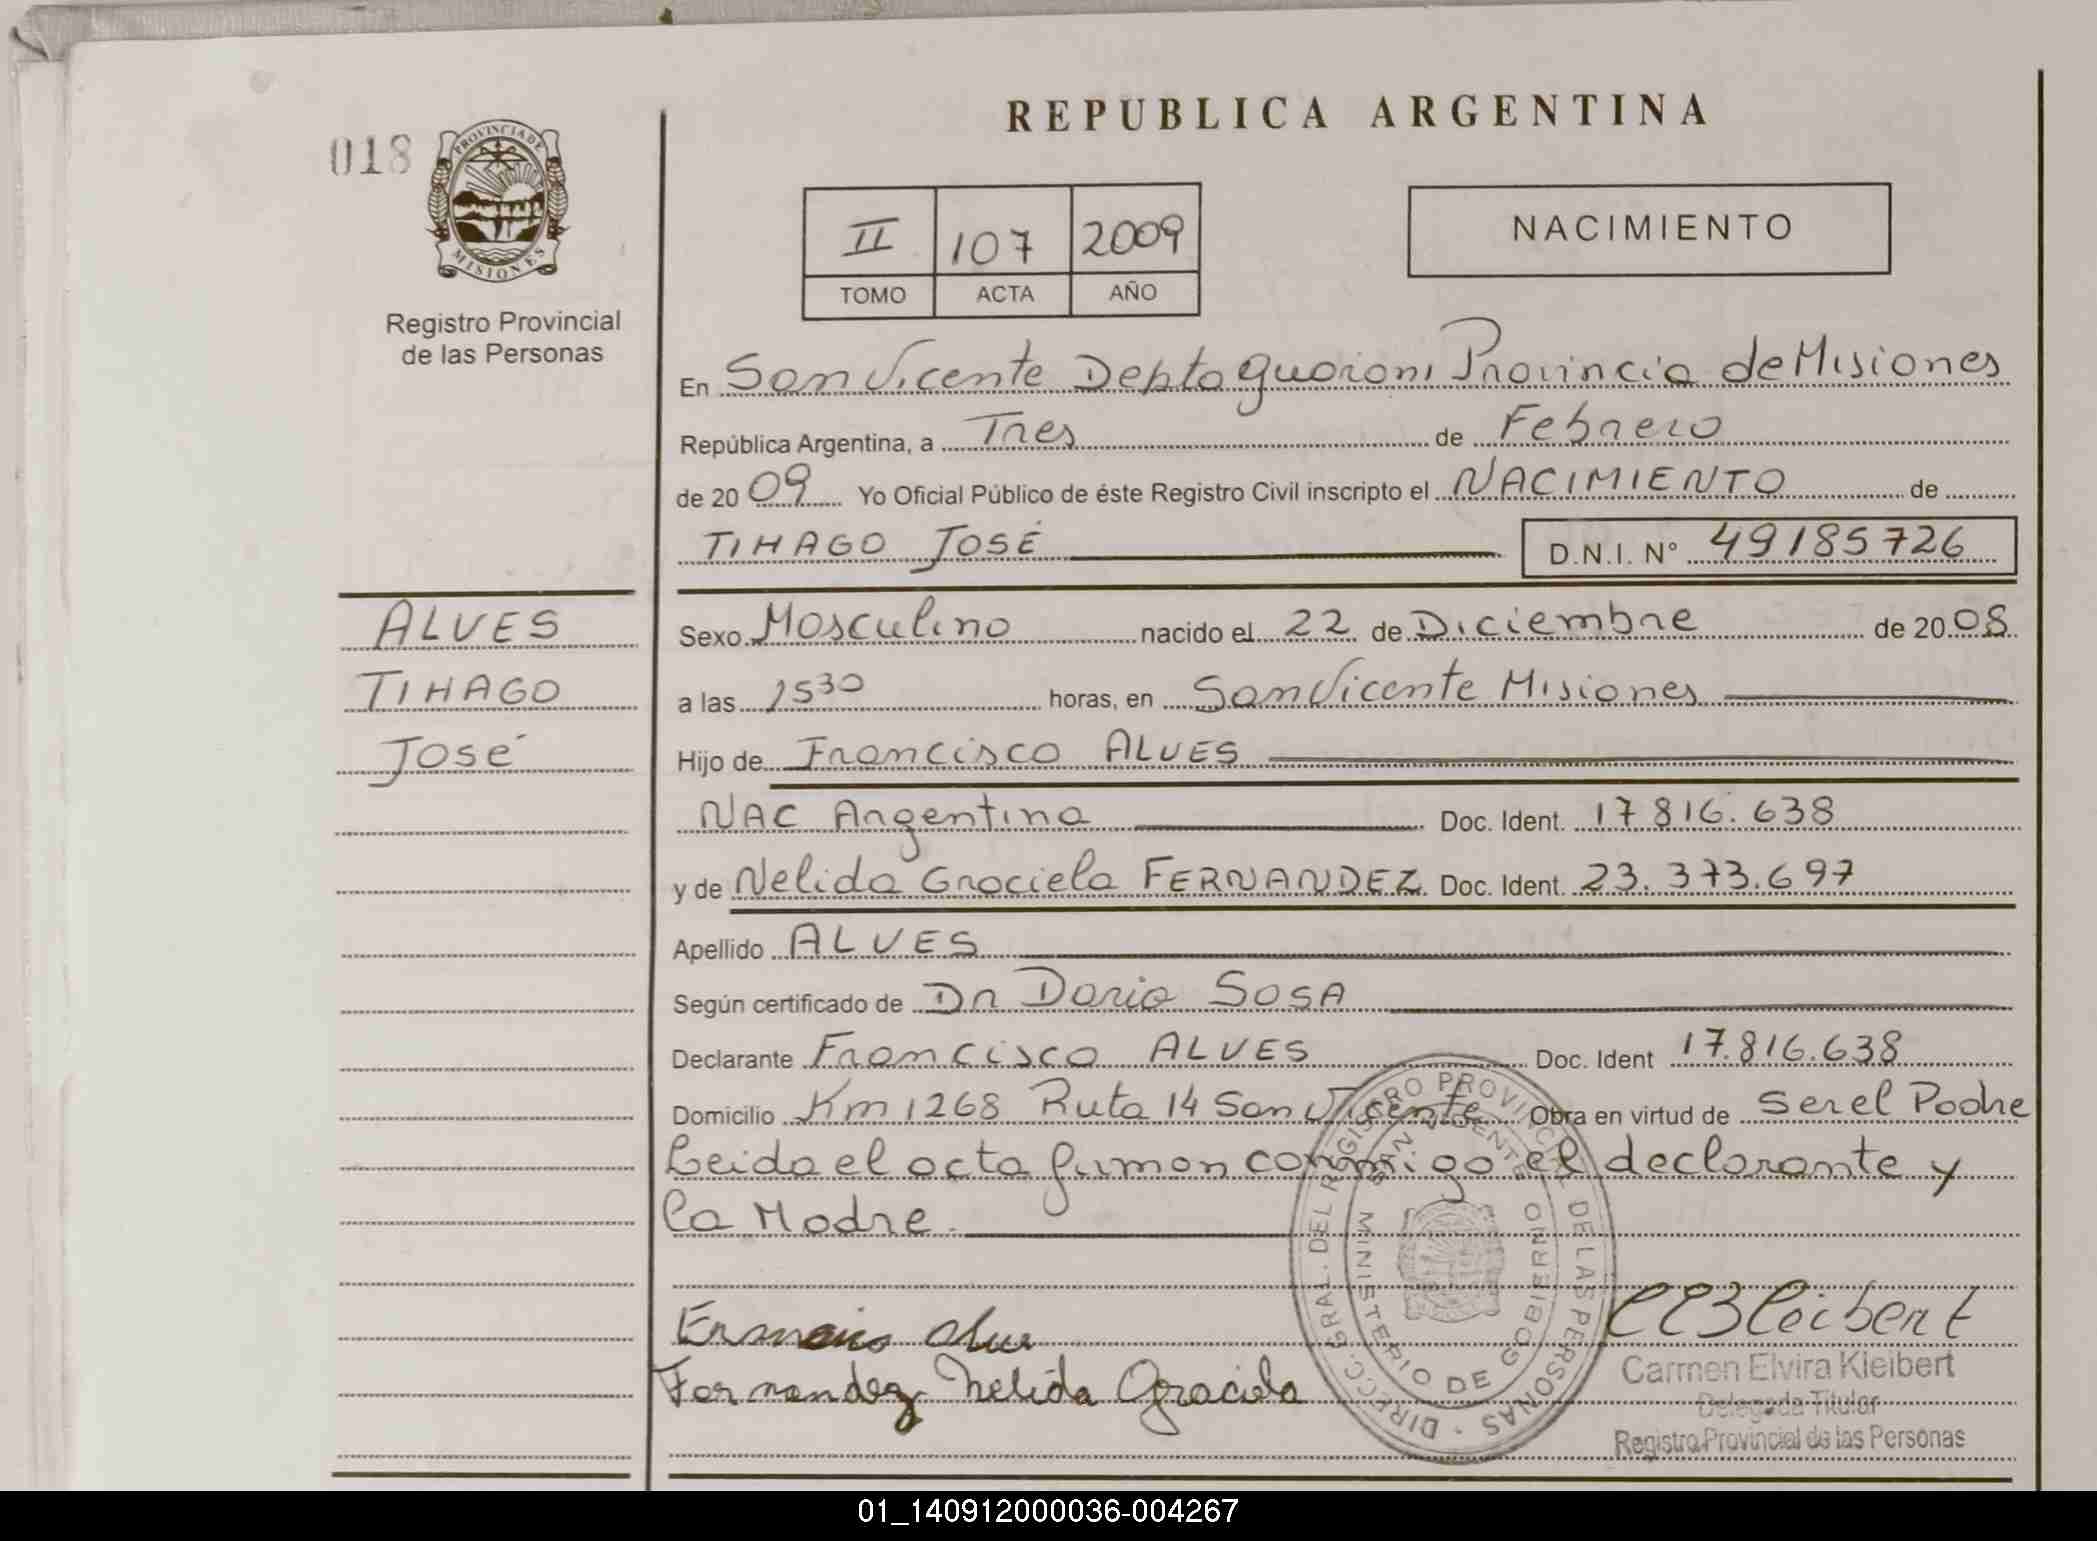 REPUBLICA ARGENTINA
018
PROVINCIA DE
MISIONES
Registro Provincial
de las Personas
II 107 2009
TOMO ACTA AÑO
NACIMIENTO
En San Vicente Depto Guarani Provincia de Misiones
República Argentina, a Tres de Febrero
de 2009 Yo Oficial Público de éste Registro Civil inscripto el NACIMIENTO de
TIHAGO JOSÉ D.N.I. Nº 49185726
ALVES
TIHAGO
José
Sexo Masculino nacido el 22 de Diciembre de 2008
a las 1530 horas, en San Vicente Misiones
Hijo de Francisco ALVES
NAC Argentina Doc. Ident. 17816.638
y de Nelida Graciela FERNANDEZ Doc. Ident. 23.373.697
Apellido ALVES
Según certificado de Dr Dario SOSA
Declarante Francisco ALVES Doc. Ident 17.816.638
Domicilio Km 1268 Ruta 14 San Vicente Obra en virtud de Ser el Padre
Leida el acta firman conmigo el declarante y
la Madre.
DIRECC. GRAL. DEL REGISTRO PROVINCIAL DE LAS PERSONAS
SAN VICENTE
MINISTERIO DE GOBIERNO
Fernandez Nelida Graciela
CEKleibert
Carmen Elvira Kleibert
Delegada Titular
Registro Provincial de las Personas
01_140912000036-004267